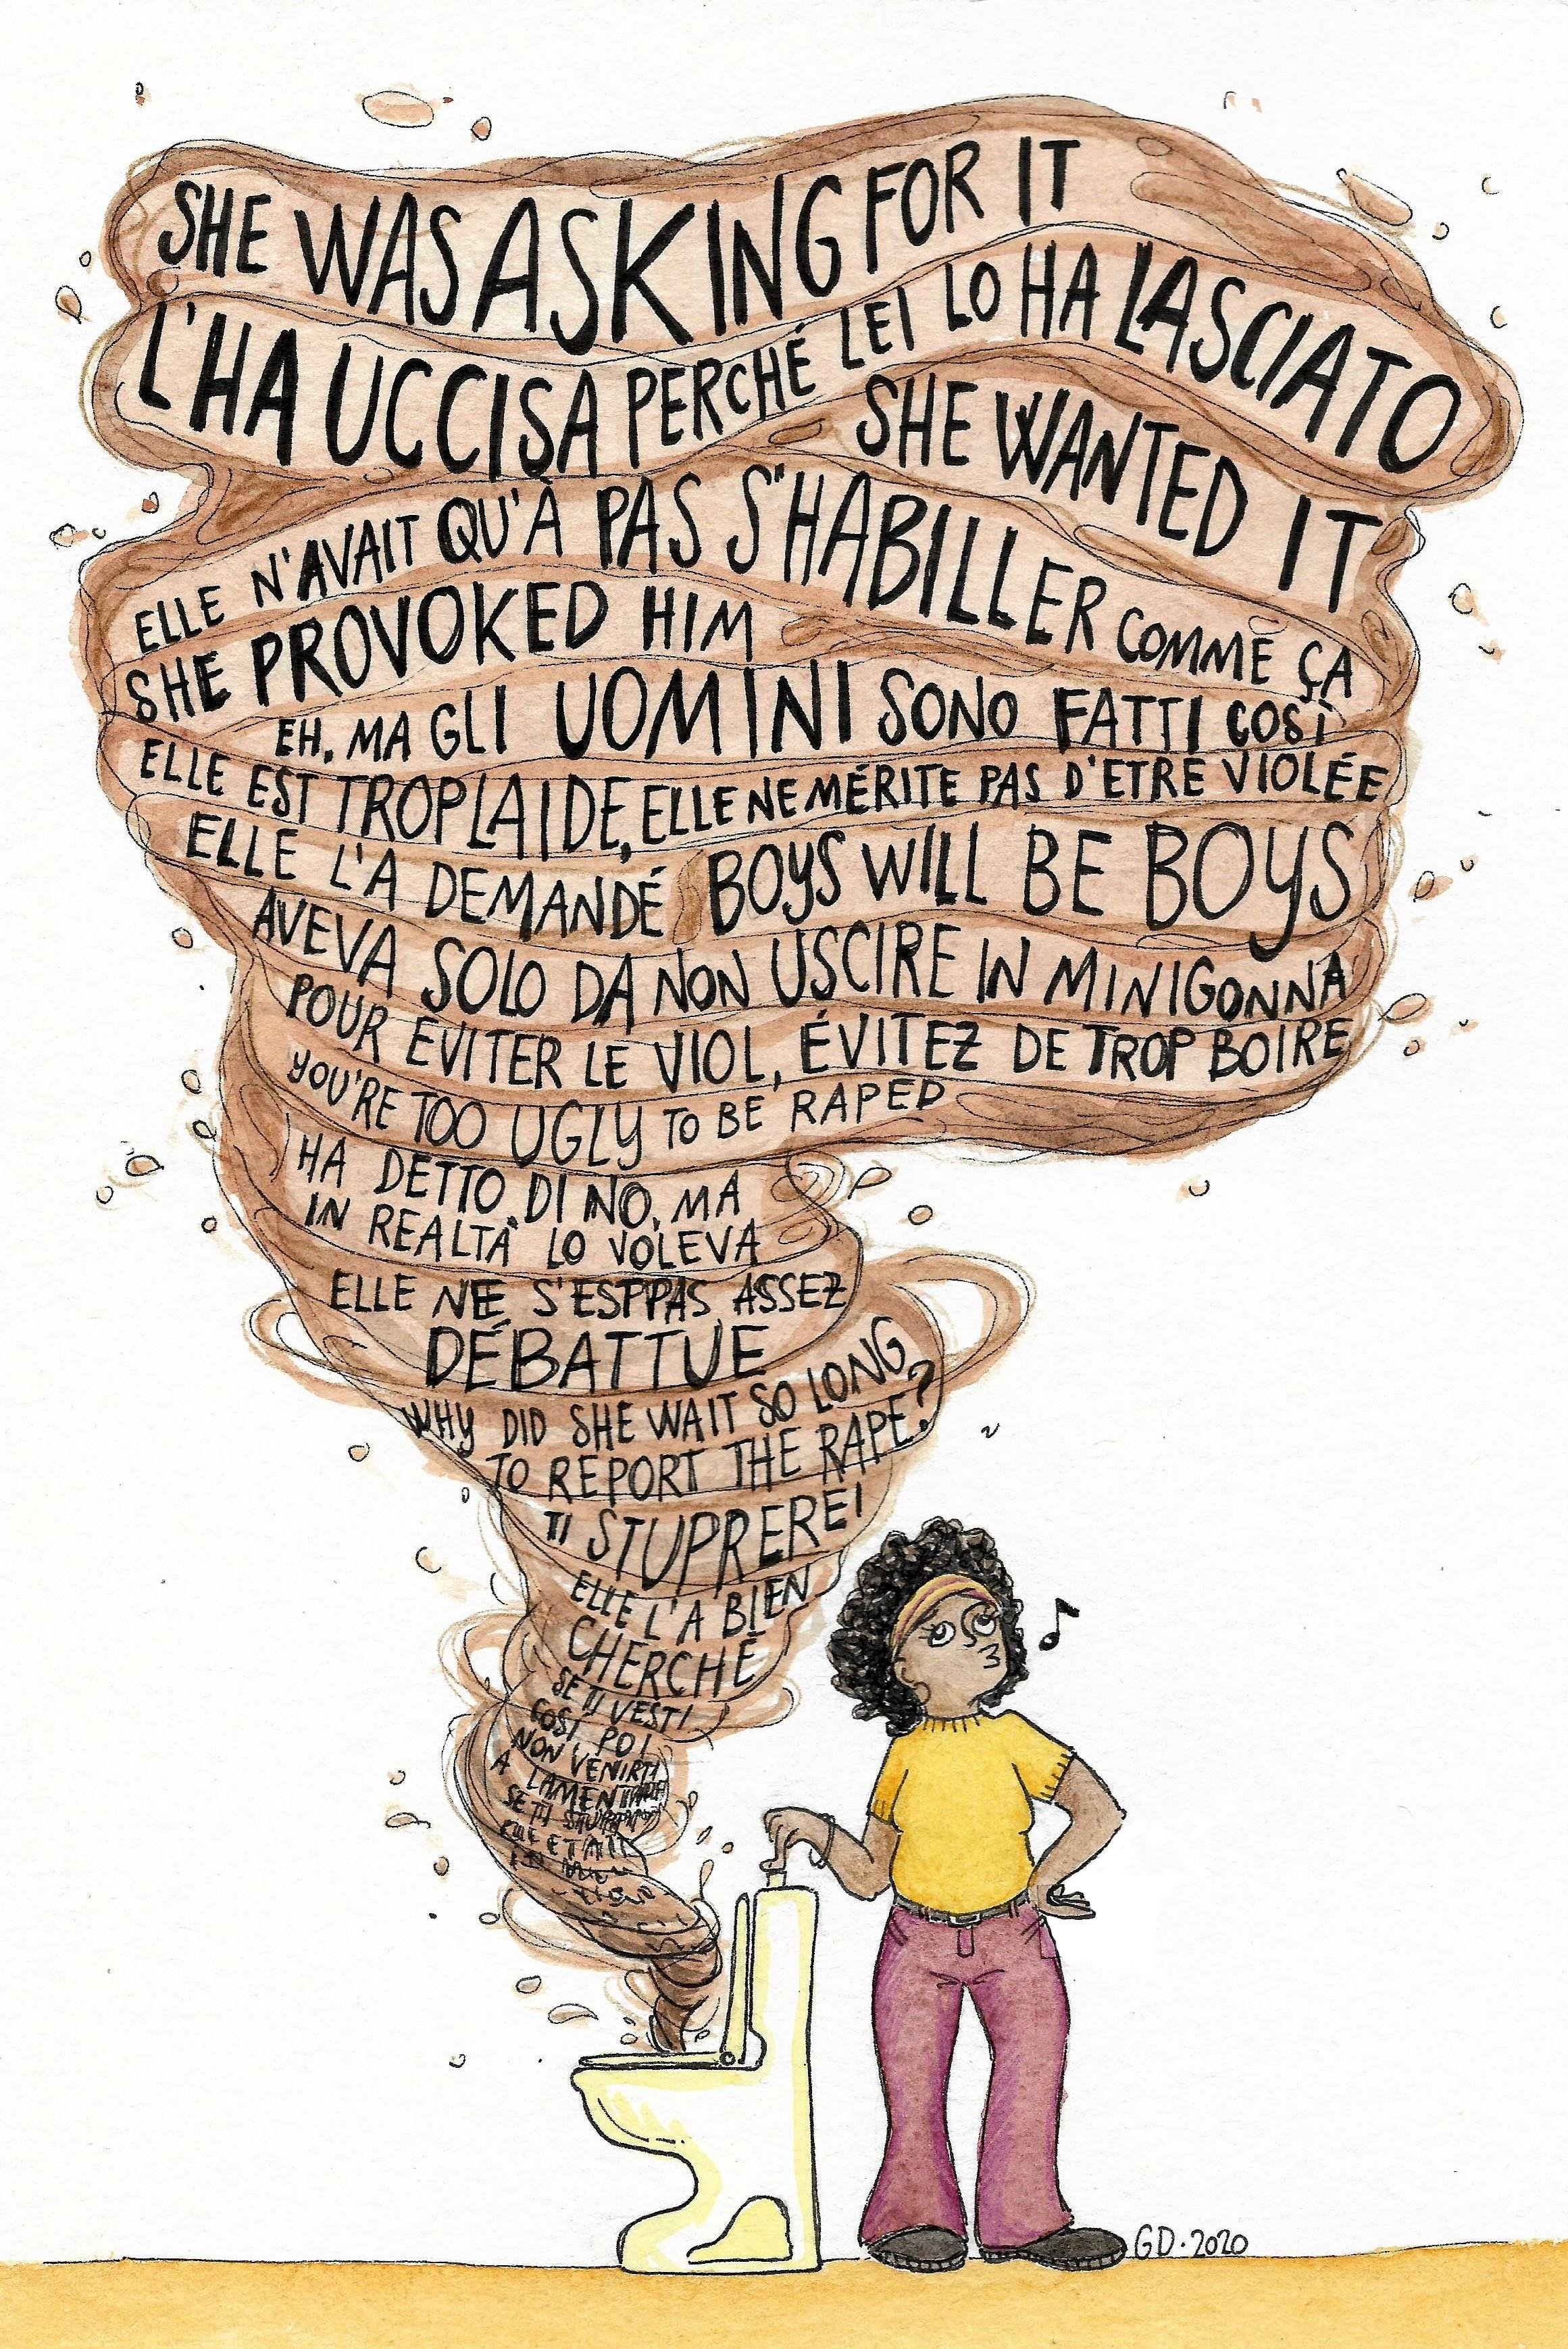 SHE WAS ASKING FOR IT
L'HA UCCISA PERCHÉ LEI LO HA LASCIATO
SHE WANTED IT
ELLE N'AVAIT QU'À PAS S'HABILLER COMME ÇA
SHE PROVOKED HIM
EH, MA GLI UOMINI SONO FATTI COSÌ
ELLE EST TROP LAIDE, ELLE NE MÉRITE PAS D'ETRE VIOLÉE
ELLE L'A DEMANDÉ
BOYS WILL BE BOYS
AVEVA SOLO DA NON USCIRE IN MINIGONNA
POUR ÉVITER LE VIOL, ÉVITEZ DE TROP BOIRE
YOU'RE TOO UGLY TO BE RAPED
HA DETTO DI NO, MA
IN REALTÀ LO VOLEVA
ELLE NE S'EST PAS ASSEZ
DÉBATTUE
WHY DID SHE WAIT SO LONG
TO REPORT THE RAPE?
TI STUPREREI
ELLE L'A BIEN
CHERCHÉ
SE TI VESTI
COSÌ POI
NON VENIRTI
A
SE TI
GD. 2020